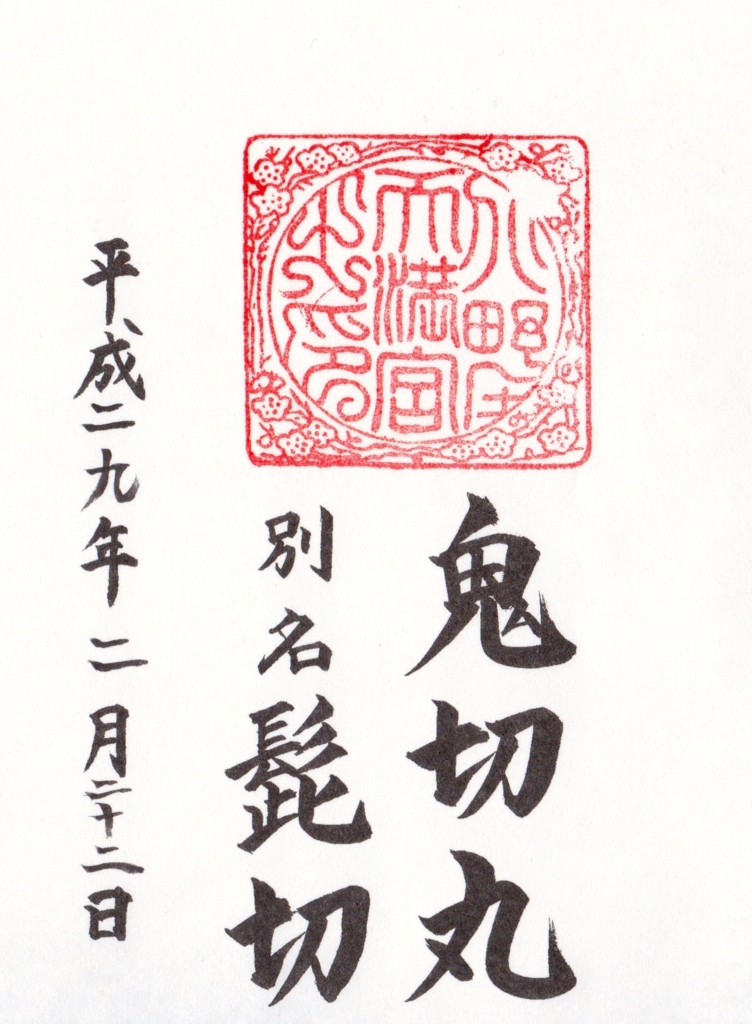 北野
天満宮
鬼切丸
別名髭切
平成二九年二月二十二日